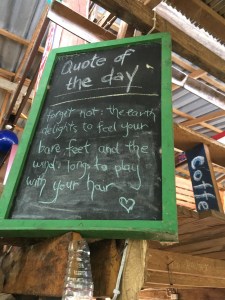 Quote of
the day
Forget not: the earth
delights to feel your
bare feet and the
winds longs to play
with your hair
Coffee